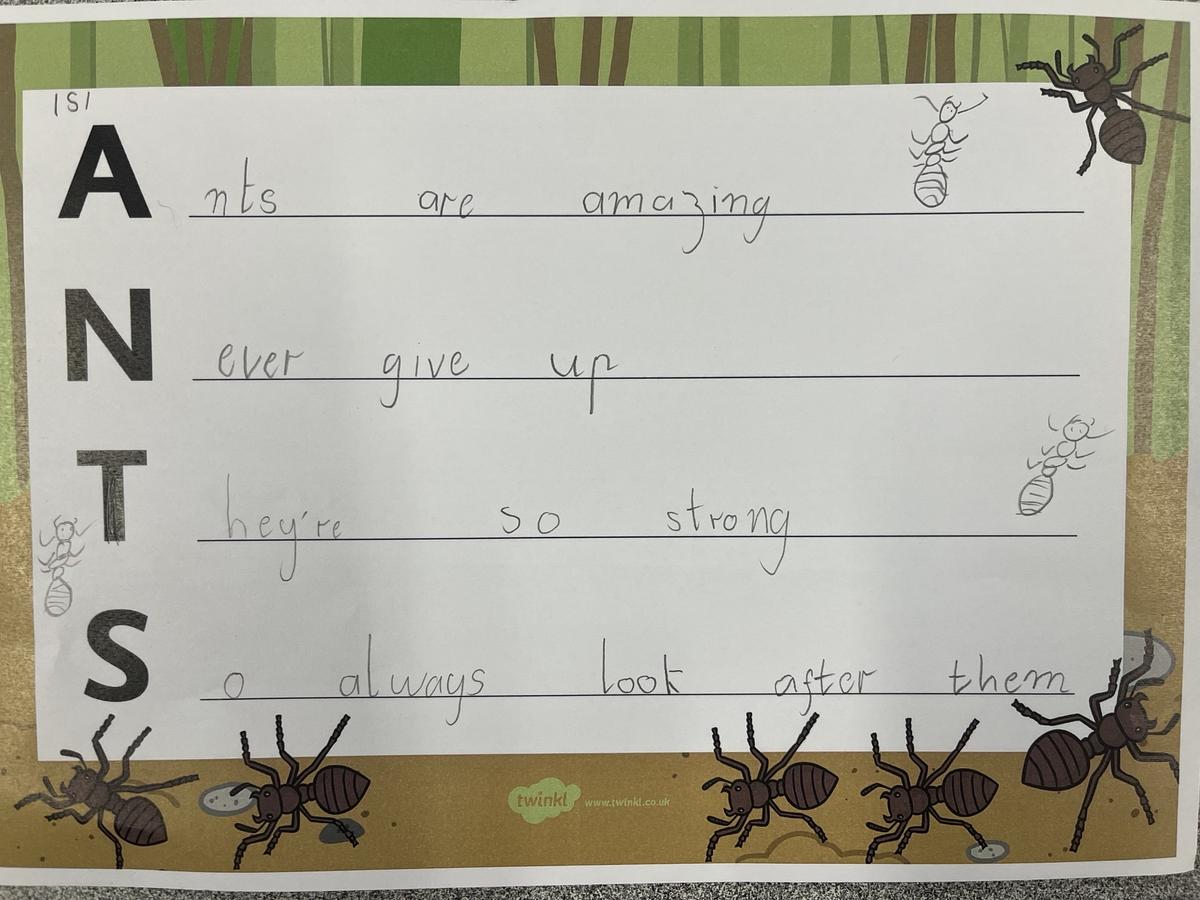 ISI
Ants are amazing
Never give up
They're so strong
So always look after them
twinkl www.twinkl.co.uk